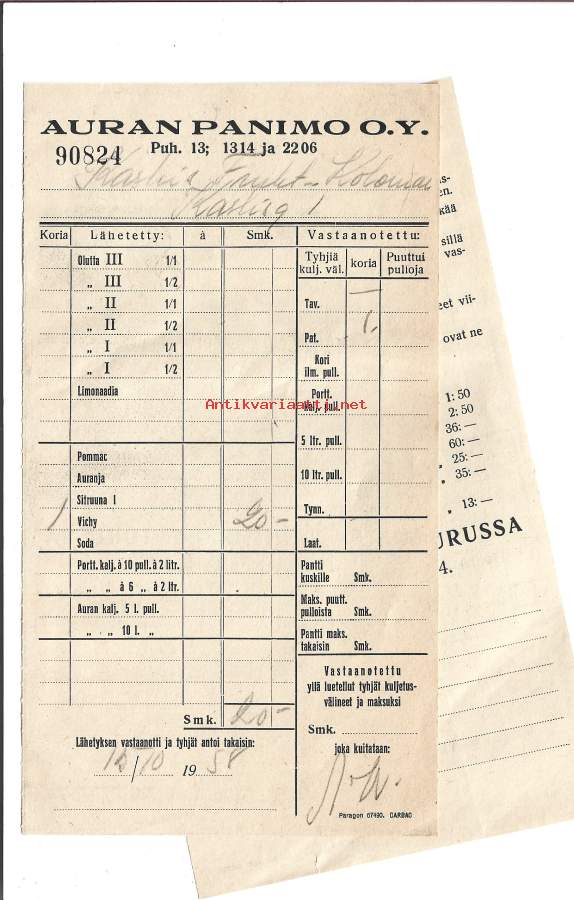 AURAN PANIMO O.Y.
90824 Puh. 13; 1314 ja 2206
Frukt - Kolonial
1
Koria Lähetetty: à Smk. Vastaanotettu:
Tyhjiä kulj. väl. koria Puuttui pulloja
Olutta III 1/1
„ III 1/2
„ II 1/1
„ II 1/2
„ I 1/1
„ I 1/2
Limonaadia
Pommac
Auranja
Sitruuna I
1 Vichy 20-
Soda
Portt. kalj. à 10 pull. à 2 litr.
„ „ à 6 „ à 2 ltr.
Auran kalj. 5 l. pull.
„ „ 10 l. „
Smk. 20-
Lähetyksen vastaanotti ja tyhjät antoi takaisin:
/10 19 38
Tav. —
Pat. 1.
Kori
ilm. pull.
Portt.
kalj. pull.
5 ltr. pull.
10 ltr. pull.
Tynn.
Laat.
Pantti
kuskille Smk.
Maks. puutt.
pulloista Smk.
Pantti maks.
takaisin Smk.
Vastaanotettu
yllä luetellut tyhjät kuljetus-
välineet ja maksuksi
Smk.
joka kuitataan:
Paragon 67490. CARBAC
Antikvariaatti.net
s-
en.
kää
sillä
vas-
eet vii-
ovat ne
1: 50
2: 50
36: —
60: —
„ 25: —
„ 35: —
„ 13: —
URUSSA
4.